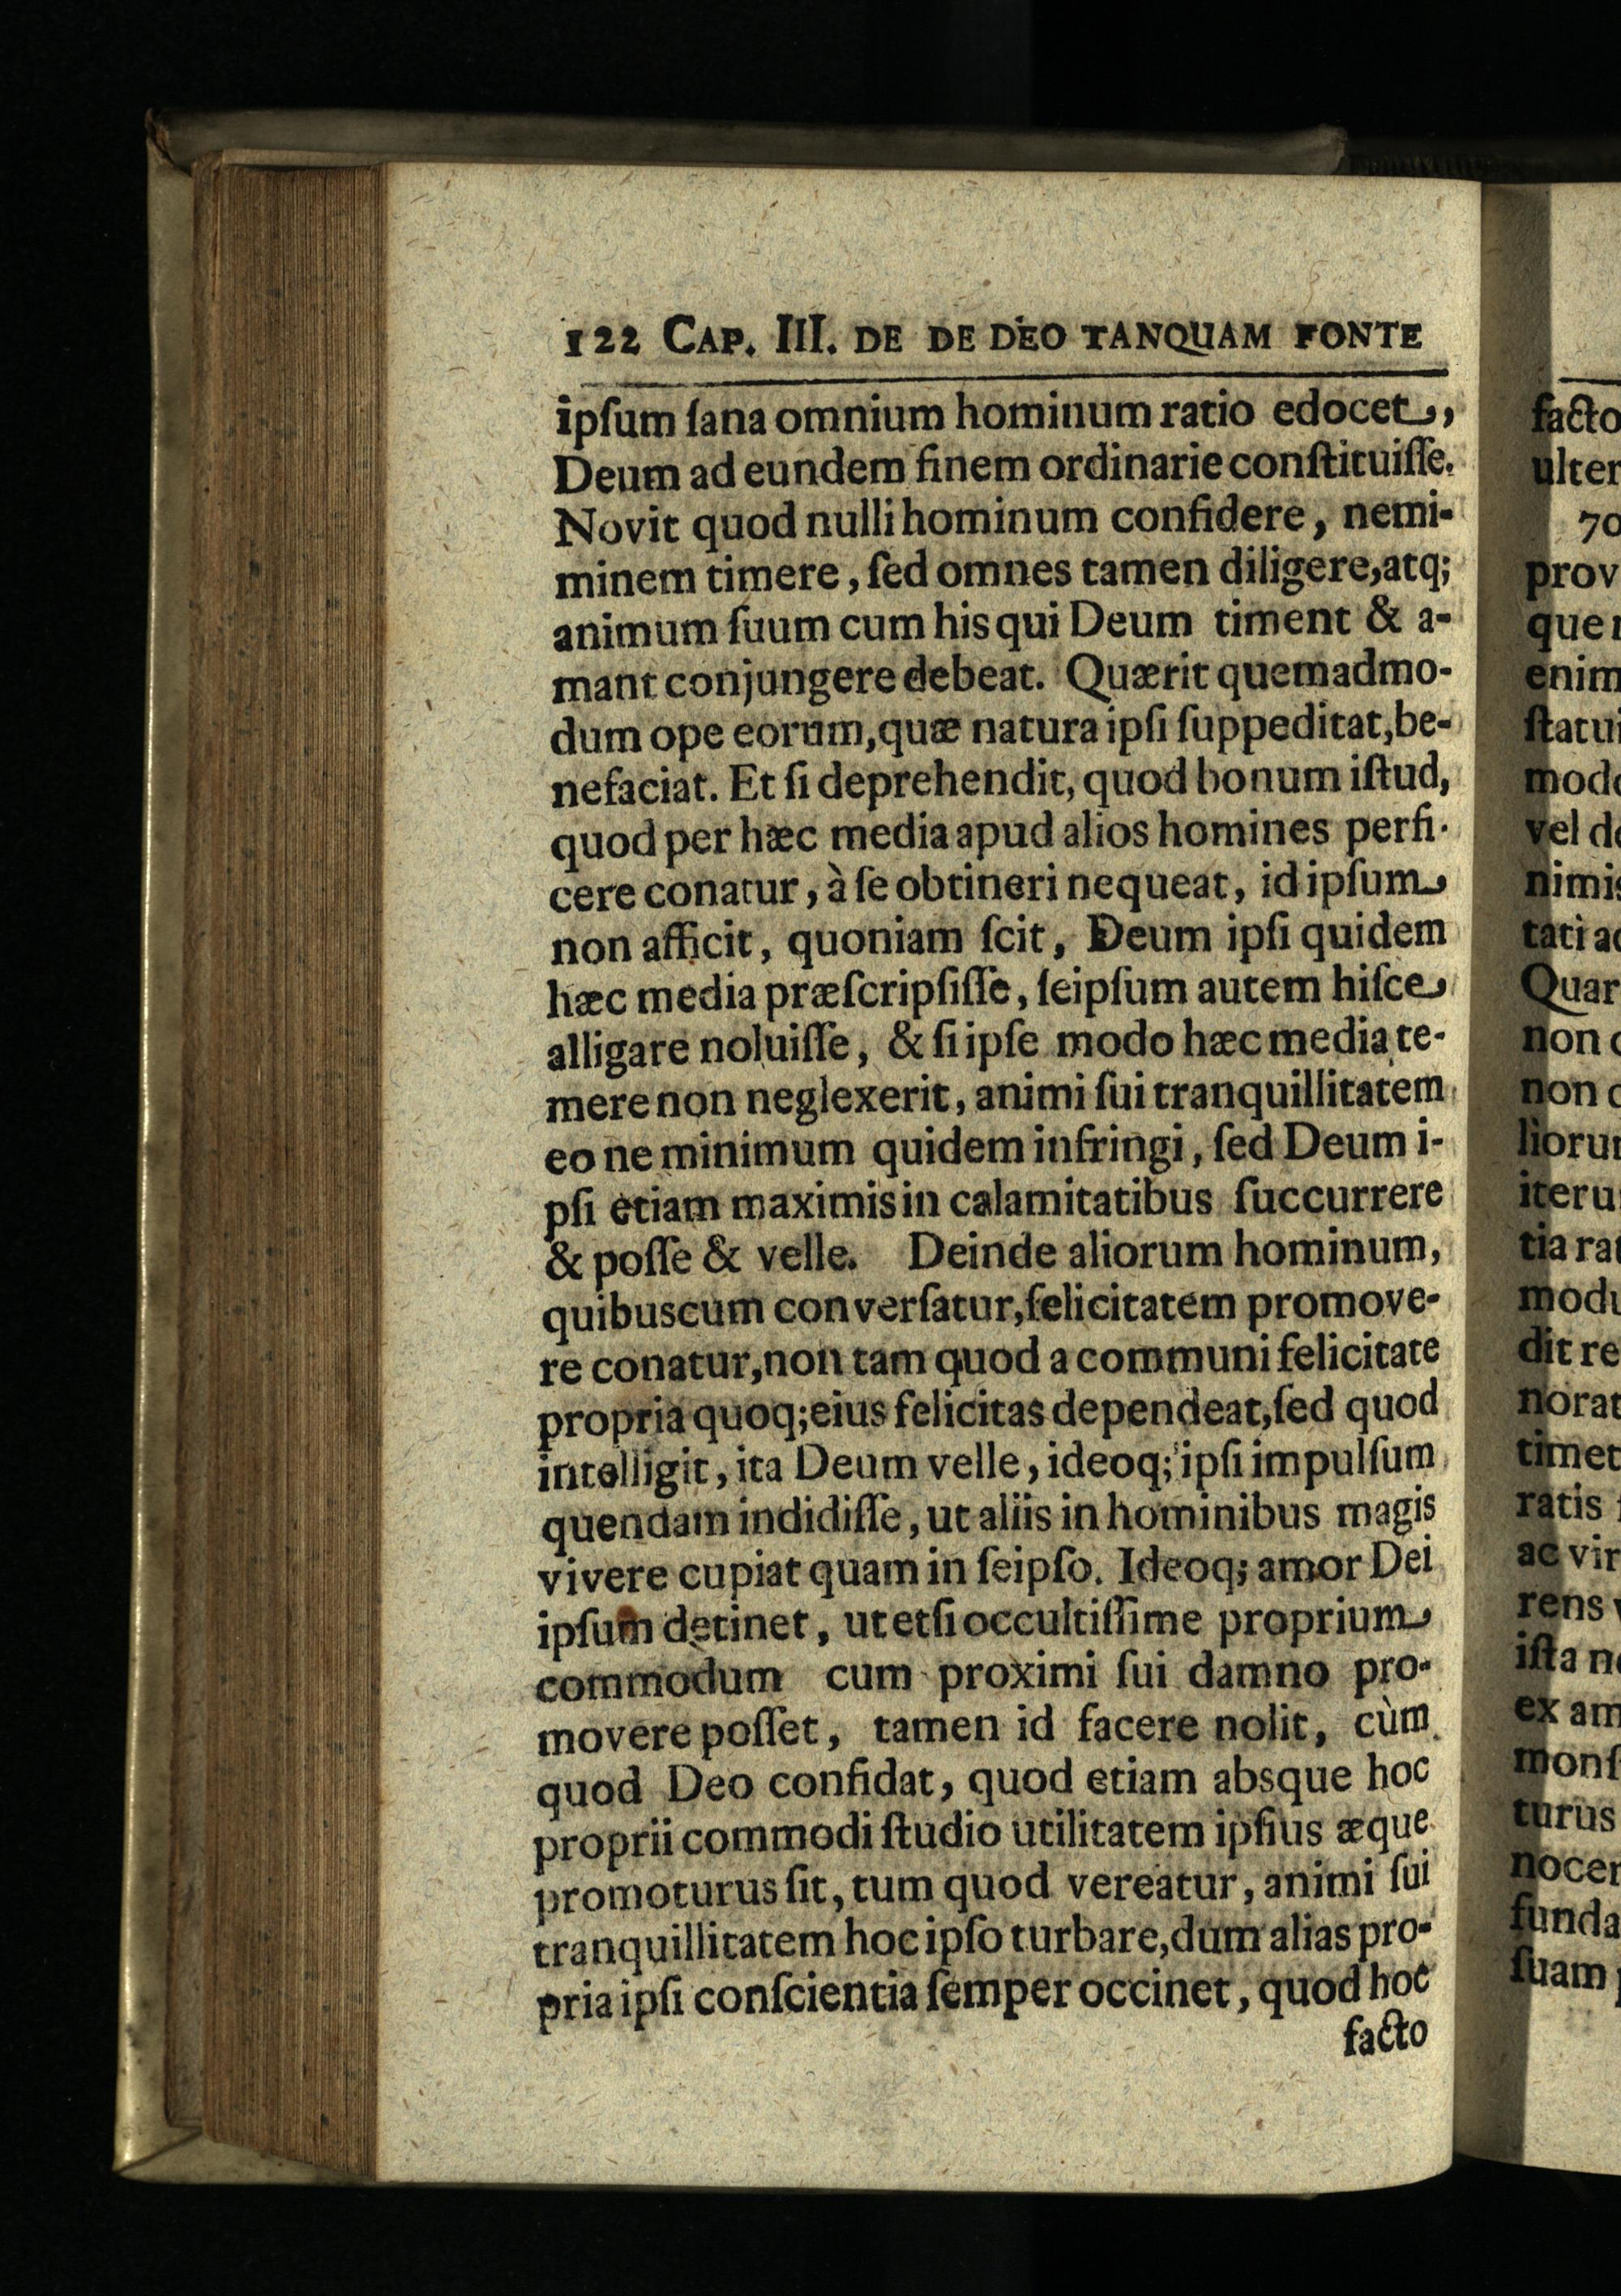 122 CAP. III. DE DE DEO TANQUAM FONTE
ipſum ſana omnium hominum ratio edocet,
Deum ad eundem finem ordinarie conſtituiſſe.
Novit quod nulli hominum confidere, nemi-
minem timere, ſed omnes tamen diligere, atq;
animum ſuum cum his qui Deum timent & a-
mant conjungere debeat. Quærit quemadmo-
dum ope eorum, quæ natura ipſi ſuppeditat, be-
nefaciat. Et ſi deprehendit, quod bonum iſtud,
quod per hæc media apud alios homines perfi-
cere conatur, à ſe obtineri nequeat, id ipſum
non afficit, quoniam ſcit, Deum ipſi quidem
hæc media præſcripſiſſe, ſeipſum autem hiſce
alligare noluiſſe, & ſi ipſe modo hæc media te-
mere non neglexerit, animi ſui tranquillitatem
eo ne minimum quidem infringi, ſed Deum i-
pſi etiam maximis in calamitatibus ſuccurrere
& poſſe & velle. Deinde aliorum hominum,
quibuscum converſatur, felicitatem promove-
re conatur, non tam quod a communi felicitate
propria quoq; eius felicitas dependeat, ſed quod
intelligit, ita Deum velle, ideoq; ipſi impulſum
quendam indidiſſe, ut aliis in hominibus magis
vivere cupiat quam in ſeipſo. Ideoq; amor Dei
ipſum detinet, ut etſi occultiſſime proprium
commodum cum proximi ſui damno pro-
movere poſſet, tamen id facere nolit, cùm
quod Deo confidat, quod etiam absque hoc
proprii commodi ſtudio utilitatem ipſius æque
promoturus ſit, tum quod vereatur, animi ſui
tranquillitatem hoc ipſo turbare, dum alias pro-
pria ipſi conſcientia ſemper occinet, quod hoc
facto
facto
70